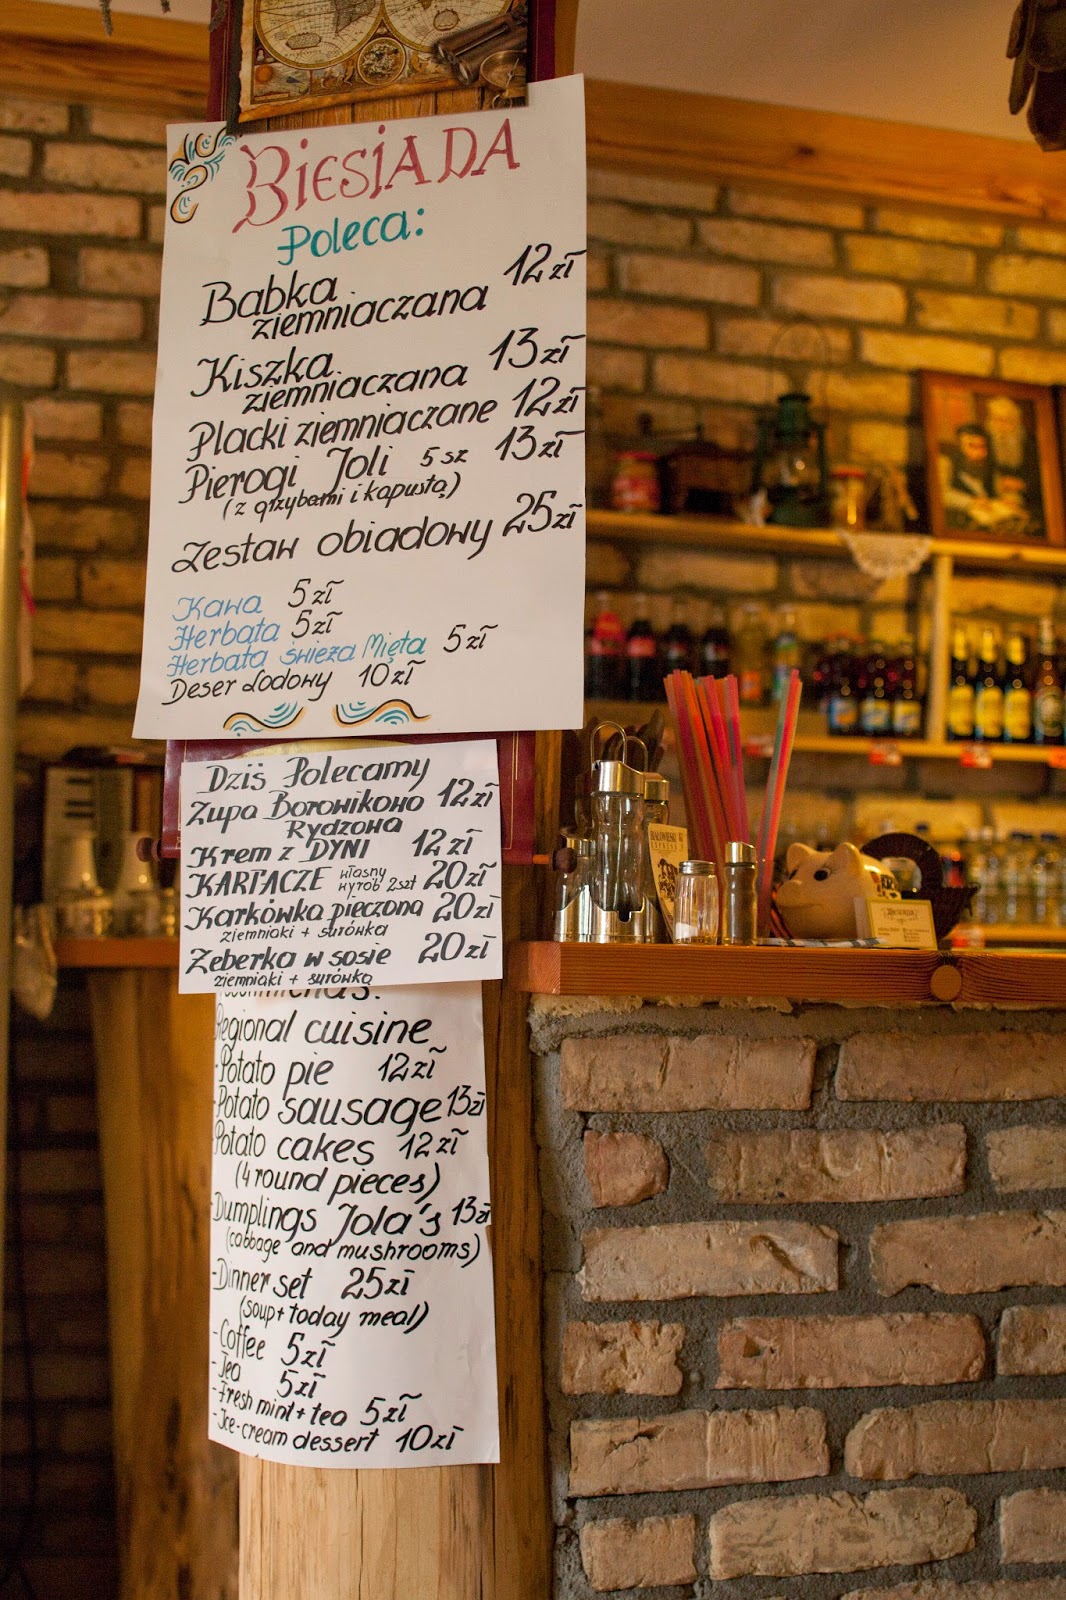 BiESiADA
Poleca:
Babka
ziemniaczana 12 zł
Kiszka
ziemniaczana 13 zł
Placki ziemniaczane 12 zł
Pierogi Joli 5 sz 13 zł
(z grzybami i kapustą)
Zestaw obiadowy 25 zł
Kawa 5 zł
Herbata 5 zł
Herbata świeża Mięta 5 zł
Deser Lodowy 10 zł
Dziś Polecamy
Zupa Borowikowo 12 zł
Rydzowa
Krem z DYNI 12 zł
KARTACZE własny wyrób 2szt 20 zł
Karkówka pieczona 20 zł
ziemniaki + surówka
Żeberka w sosie 20 zł
ziemiaki + surówka
Regional cuisine
-Potato pie 12 zł
-Potato sausage 13 zł
Potato cakes 12 zł
(4 round pieces)
-Dumplings Jola's 13 zł
(cabbage and mushrooms)
-Dinner set 25 zł
(soup + today meal)
-Coffee 5 zł
-Tea 5 zł
-Fresh mint + tea 5 zł
-Ice-cream dessert 10 zł